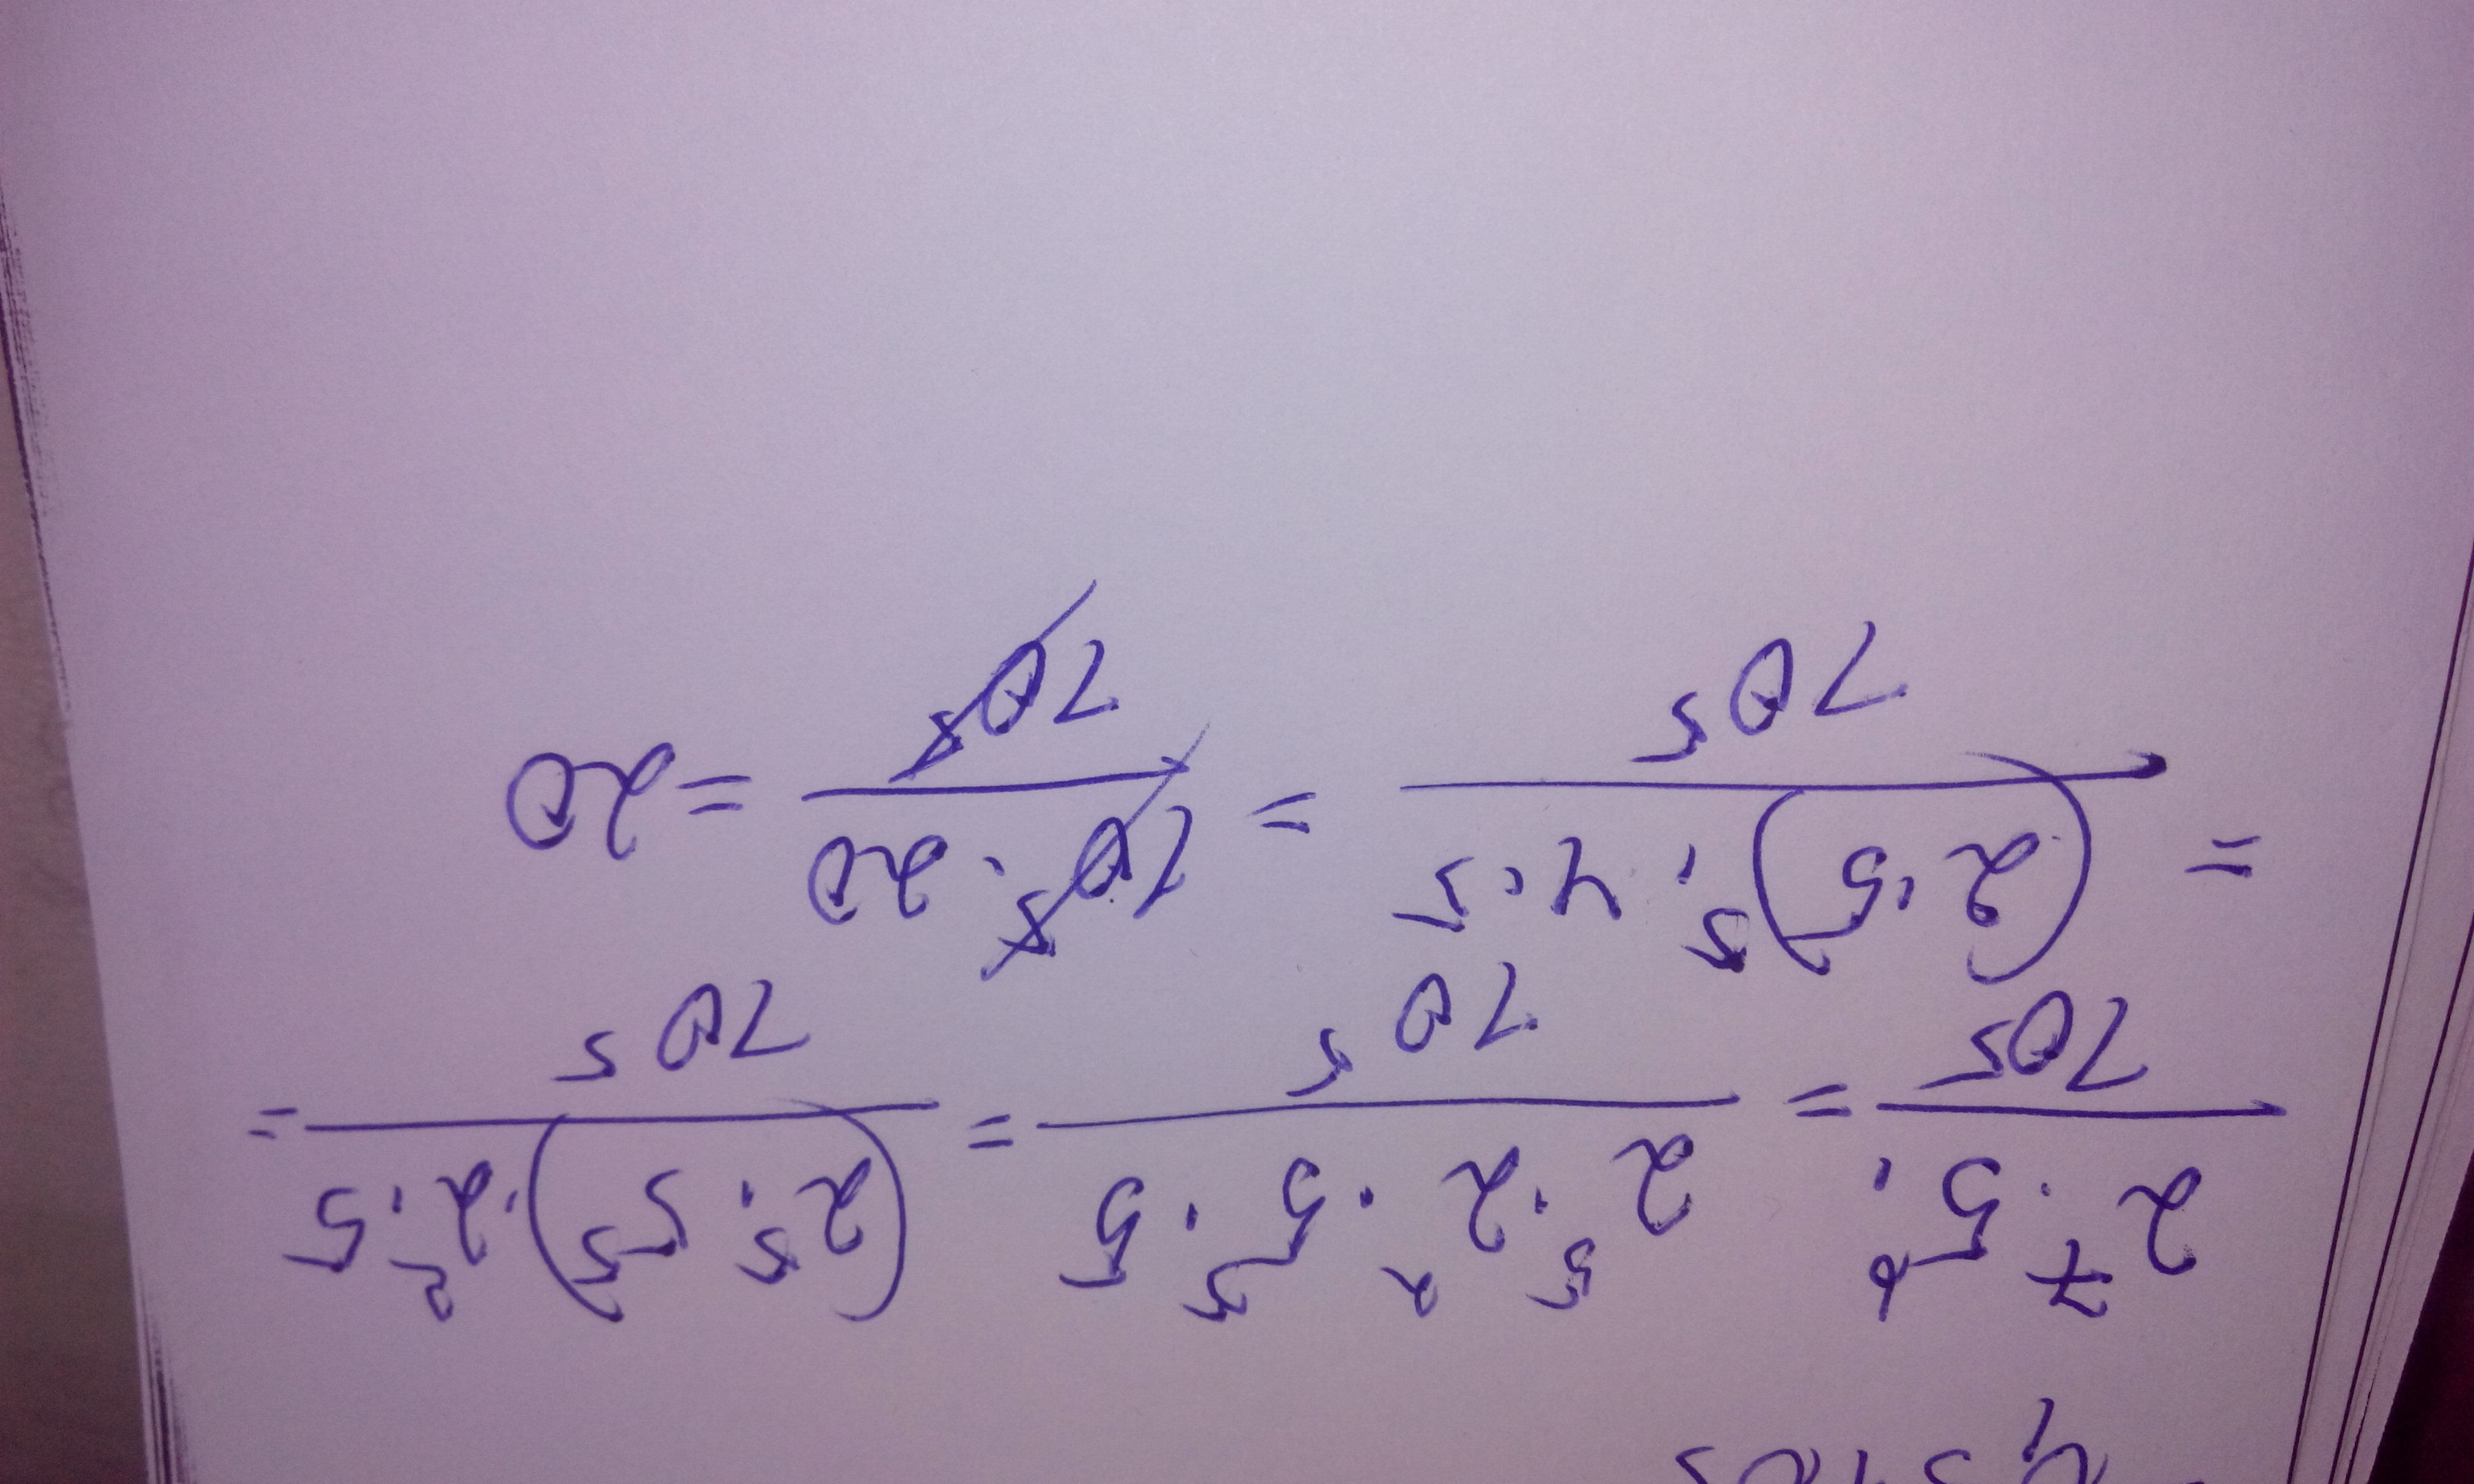 2⁷·5⁶/10⁵ = 2⁵·2²·5⁵·5/10⁵ = (2⁵·5⁵)·2²·5/10⁵ =
= (2·5)⁵·4·5/10⁵ = 10⁵·20/10⁵ = 20